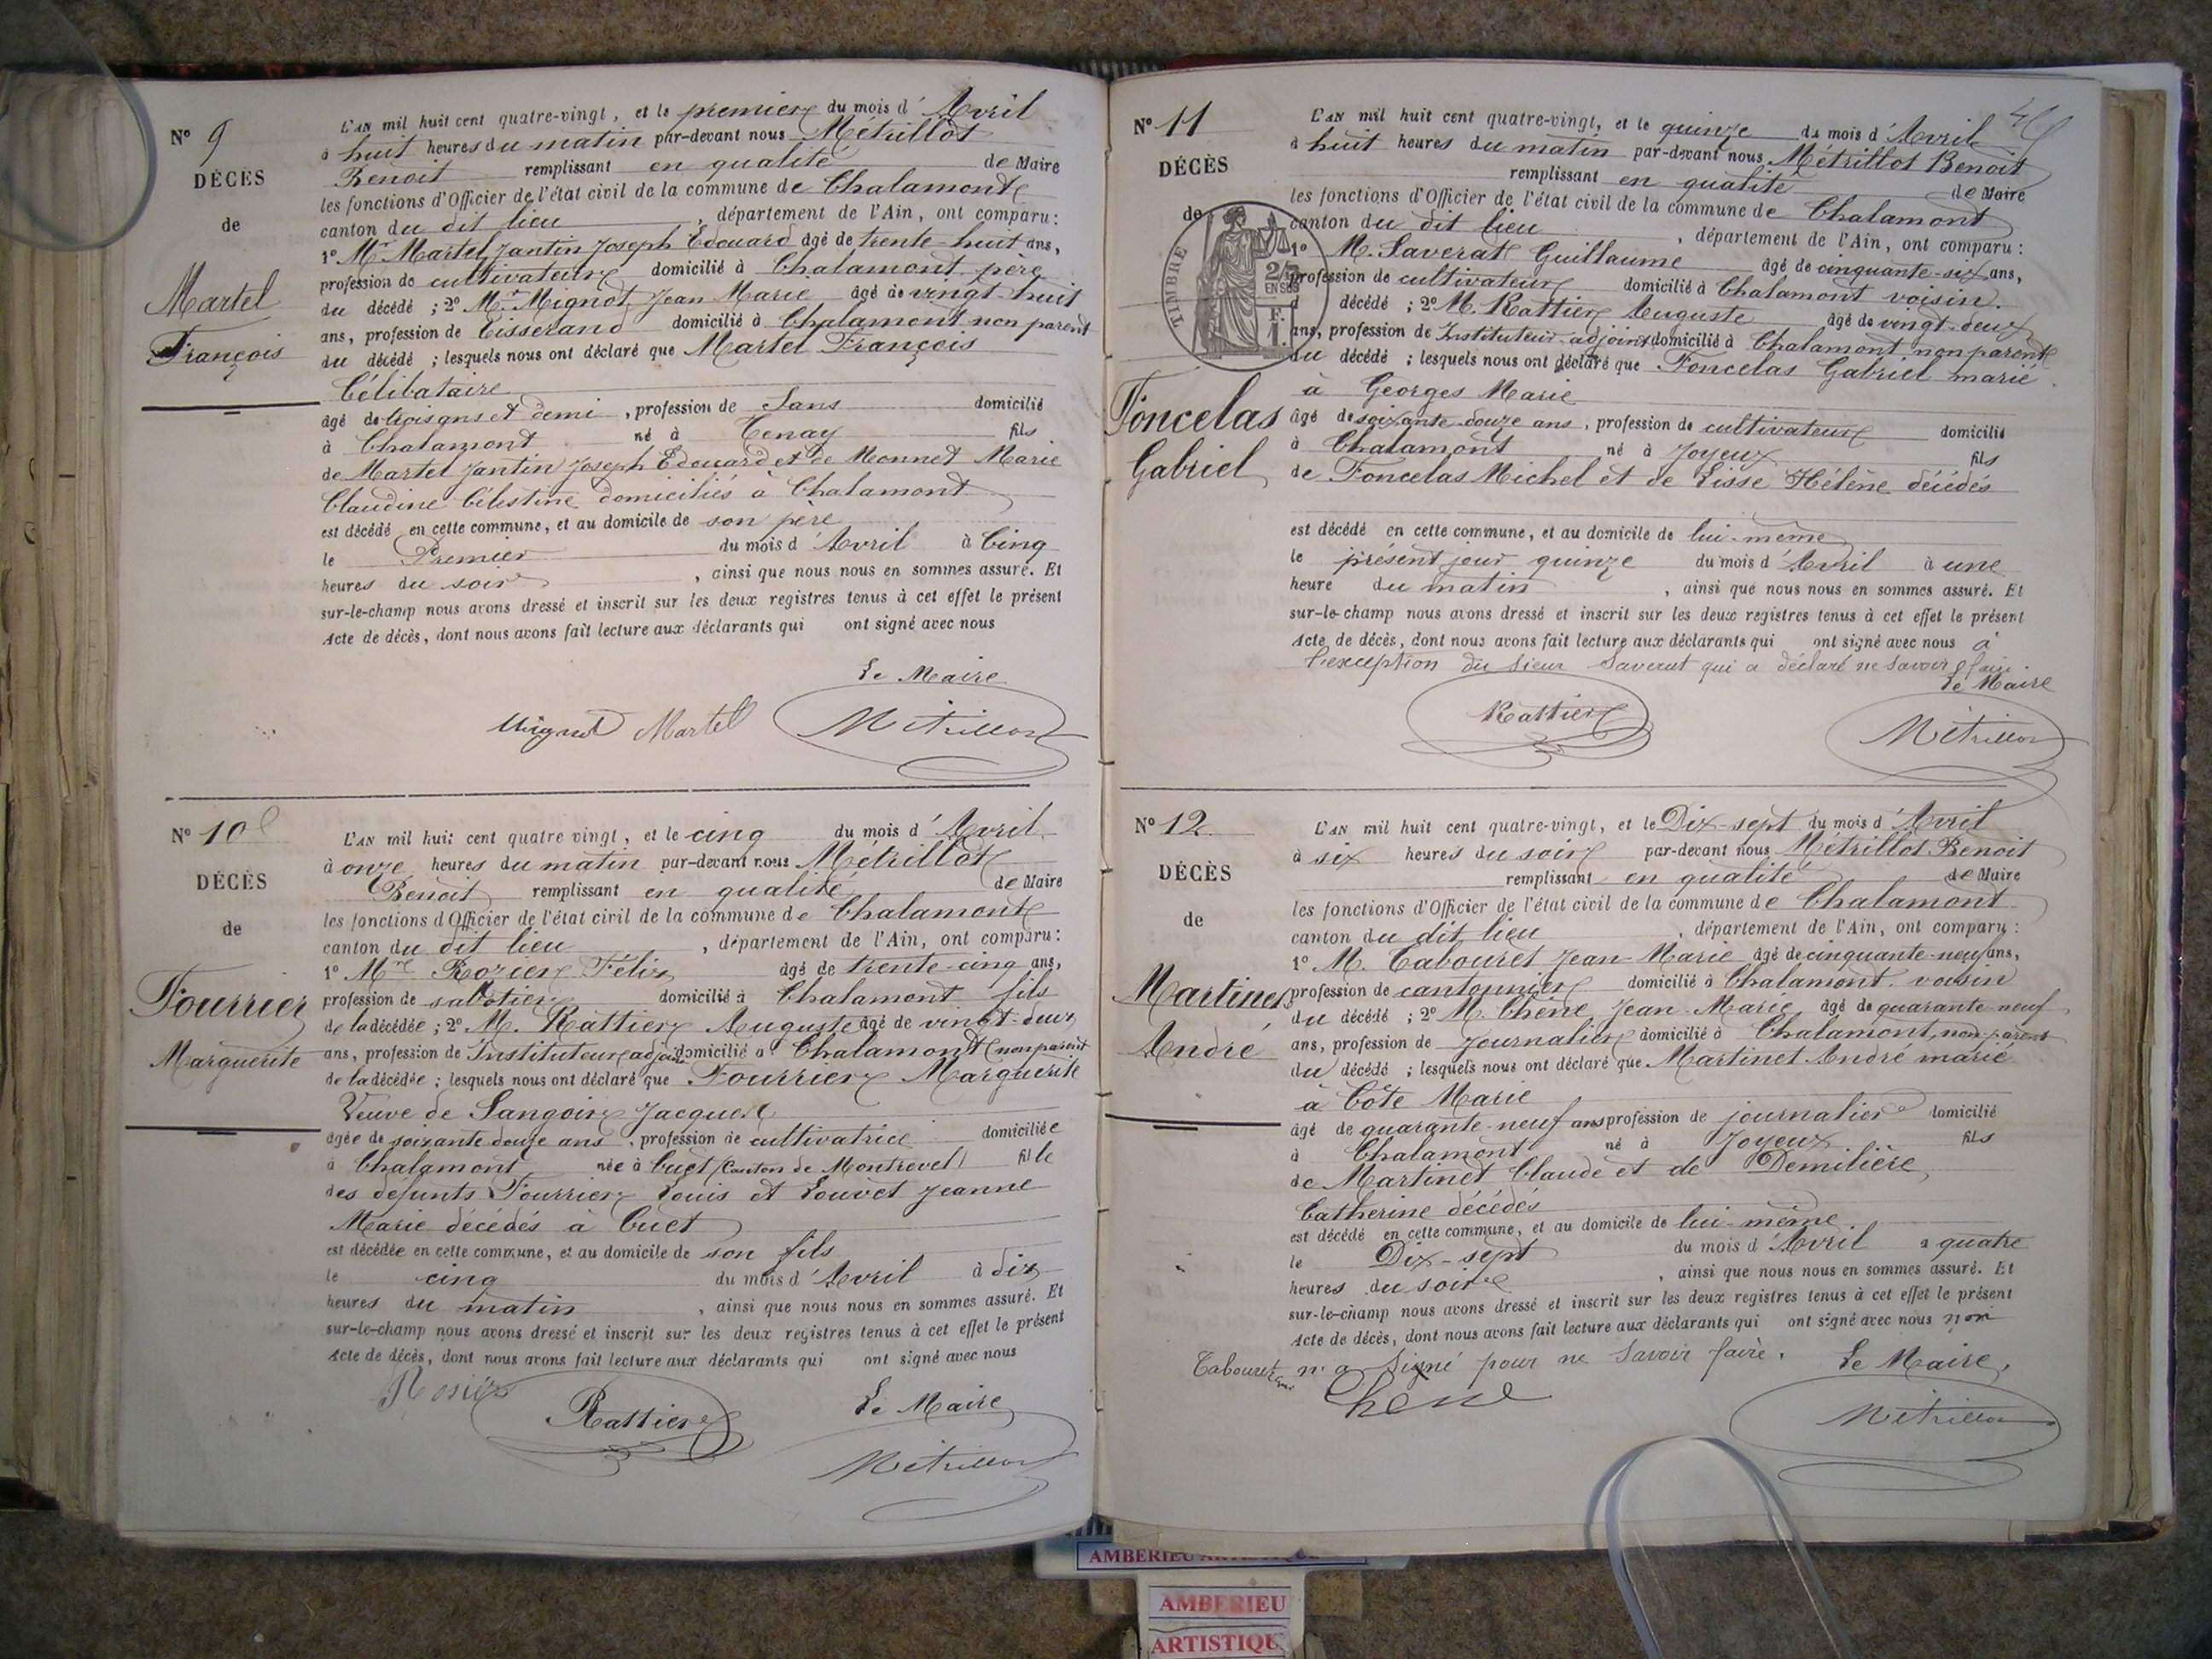 N° 9
DÉCÈS
de
Martel
François
L'AN mil huit cent quatre-vingt, et le premier du mois d'Avril
à huit heures du matin par-devant nous Métrillot
Benoit remplissant en qualité de Maire
les fonctions d'Officier de l'état civil de la commune de Chalamont
canton du dit lieu, département de l'Ain, ont comparu:
1° Mr Martel Jantin Joseph Edouard âgé de trente-huit ans,
profession de cultivateur domicilié à Chalamont père
du décédé; 2° Mr Mignot Jean Marie âgé de vingt-huit
ans, profession de Tisserand domicilié à Chalamont non parent
du décédé; lesquels nous ont déclaré que Martel François
Célibataire
âgé de trois ans et demi, profession de Sans domicilié
à Chalamont né à Tenay fils
de Martel Jantin Joseph Edouard et de Monnet Marie
Claudine Célestine domiciliés à Chalamont
est décédé en cette commune, et au domicile de son père
le Premier du mois d'Avril à Cinq
heures du soir, ainsi que nous nous en sommes assuré. Et
sur-le-champ nous avons dressé et inscrit sur les deux registres tenus à cet effet le présent
Acte de décès, dont nous avons fait lecture aux déclarants qui ont signé avec nous
Le Maire
Mignot Martel Métrillot
N° 10
DÉCÈS
de
Fourrier
Marguerite
L'AN mil huit cent quatre vingt, et le cinq du mois d'Avril
à onze heures du matin par-devant nous Métrillot
Benoit remplissant en qualité de Maire
les fonctions d'Officier de l'état civil de la commune de Chalamont
canton du dit lieu, département de l'Ain, ont comparu:
1° Mr Rozier Félix âgé de trente-cinq ans,
profession de sabotier domicilié à Chalamont fils
de la décédée; 2° M. Rattier Auguste âgé de vingt-deux
ans, profession de Instituteur adjoint domicilié à Chalamont non parent
de la décédée; lesquels nous ont déclaré que Fourrier Marguerite
Veuve de Sangoire Jacques
âgée de soixante douze ans, profession de cultivatrice domiciliée
à Chalamont née à Cuet (Canton de Montrevel) fille
des défunts Fourrier Louis et Louvet Jeanne
Marie décédés à Cuet
est décédée en cette commune, et au domicile de son fils
le cinq du mois d'Avril à dix
heures du matin, ainsi que nous nous en sommes assuré. Et
sur-le-champ nous avons dressé et inscrit sur les deux registres tenus à cet effet le présent
Acte de décès, dont nous avons fait lecture aux déclarants qui ont signé avec nous
Rosier Rattier Le Maire
Métrillot
N° 11
DÉCÈS
de
TIMBRE
Foncelas
Gabriel
L'AN mil huit cent quatre-vingt, et le quinze du mois d'Avril
à huit heures du matin par-devant nous Métrillot Benoit
remplissant en qualité de Maire
les fonctions d'Officier de l'état civil de la commune de Chalamont
canton du dit lieu, département de l'Ain, ont comparu:
1° M. Saverat Guillaume âgé de cinquante-six ans,
profession de cultivateur domicilié à Chalamont voisin.
d décédé; 2° M. Rattier Auguste âgé de vingt-deux
ans, profession de Instituteur-adjoint domicilié à Chalamont non parent
du décédé; lesquels nous ont déclaré que Foncelas Gabriel marié
à Georges Marie
âgé de soixante-douze ans, profession de cultivateur domicilié
à Chalamont né à Joyeux fils
de Foncelas Michel et de Lisse Hélène décédés
est décédé en cette commune, et au domicile de lui-même
le présent jour quinze du mois d'Avril à une
heure du matin, ainsi que nous nous en sommes assuré. Et
sur-le-champ nous avons dressé et inscrit sur les deux registres tenus à cet effet le présent
Acte de décès, dont nous avons fait lecture aux déclarants qui ont signé avec nous à
l'exception du sieur Saverat qui a déclaré ne savoir faire.
Le Maire
Rattier Métrillot
N° 12.
DÉCÈS
de
Martinet
André
L'AN mil huit cent quatre-vingt, et le Dix-sept du mois d'Avril
à six heures du soir par-devant nous Métrillot Benoit
remplissant en qualité de Maire
les fonctions d'Officier de l'état civil de la commune de Chalamont
canton du dit lieu, département de l'Ain, ont comparu:
1° M. Cabouret Jean Marie âgé de cinquante-neuf ans,
profession de cantonnier domicilié à Chalamont voisin
du décédé; 2° M. Chêne Jean-Marie âgé de quarante-neuf
ans, profession de Journalier domicilié à Chalamont, non-parent
du décédé; lesquels nous ont déclaré que Martinet André marié
à Cote Marie
âgé de quarante-neuf ans profession de journalier domicilié
à Chalamont né à Joyeux fils
de Martinet Claude et de Demilière
Catherine décédés
est décédé en cette commune, et au domicile de lui-même.
le Dix-sept du mois d'Avril à quatre
heures du soir, ainsi que nous nous en sommes assuré. Et
sur-le-champ nous avons dressé et inscrit sur les deux registres tenus à cet effet le présent
Acte de décès, dont nous avons fait lecture aux déclarants qui ont signé avec nous non
Cabouret qui n'a signé pour ne savoir faire. Le Maire,
Chêne Métrillot
AMBERIEU
AMBERIEU
ARTISTIQU